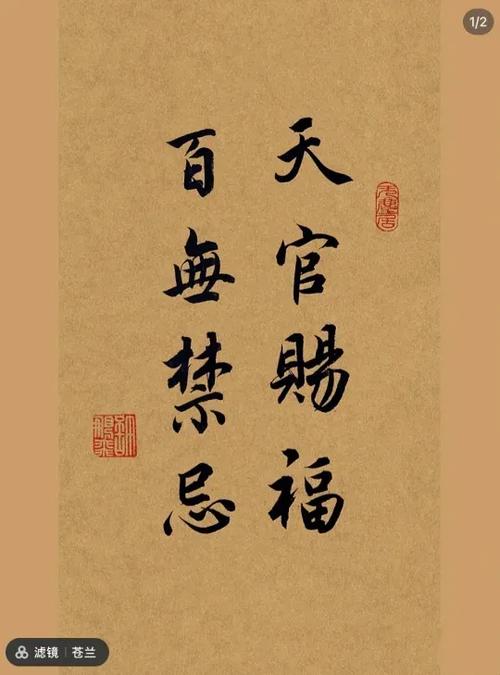 天官賜福
百無禁忌
1/2
滤镜 | 苍兰